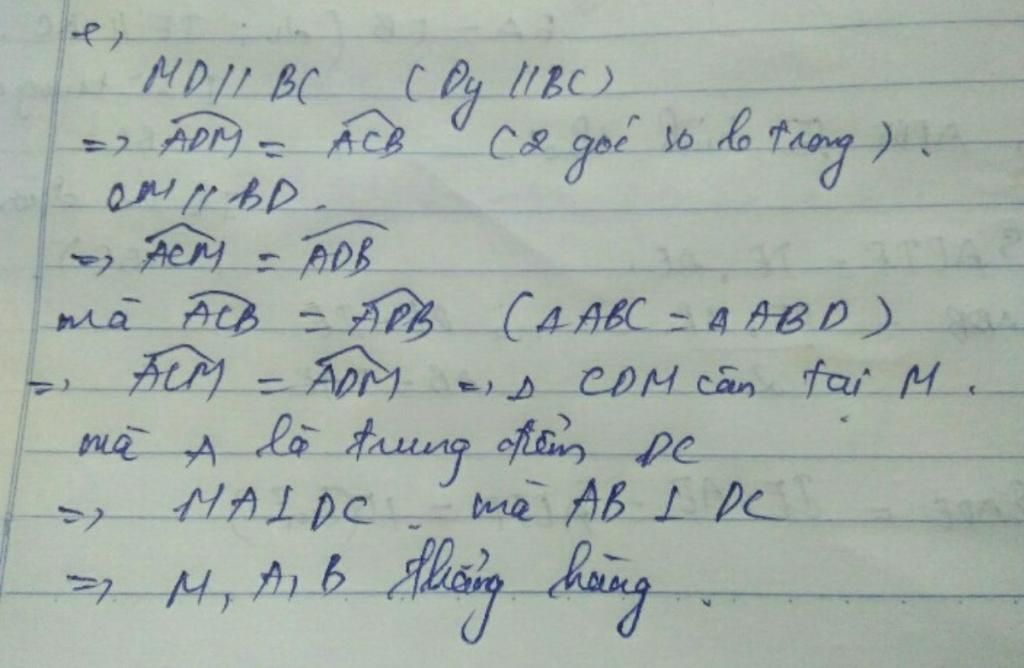 e,
MD // BC ( Dy // BC)
=> \widehat{ADM} = \widehat{ACB} ( 2 góc so le trong ) .
CM // BD .
=> \widehat{ACM} = \widehat{ADB}
mà \widehat{ACB} = \widehat{ADB} ( Δ ABC = Δ ABD )
=> \widehat{ACM} = \widehat{ADM} => Δ CDM cân tại M .
mà A là trung điểm DC
=> MA ⊥ DC . mà AB ⊥ DC
=> M, A, B thẳng hàng .